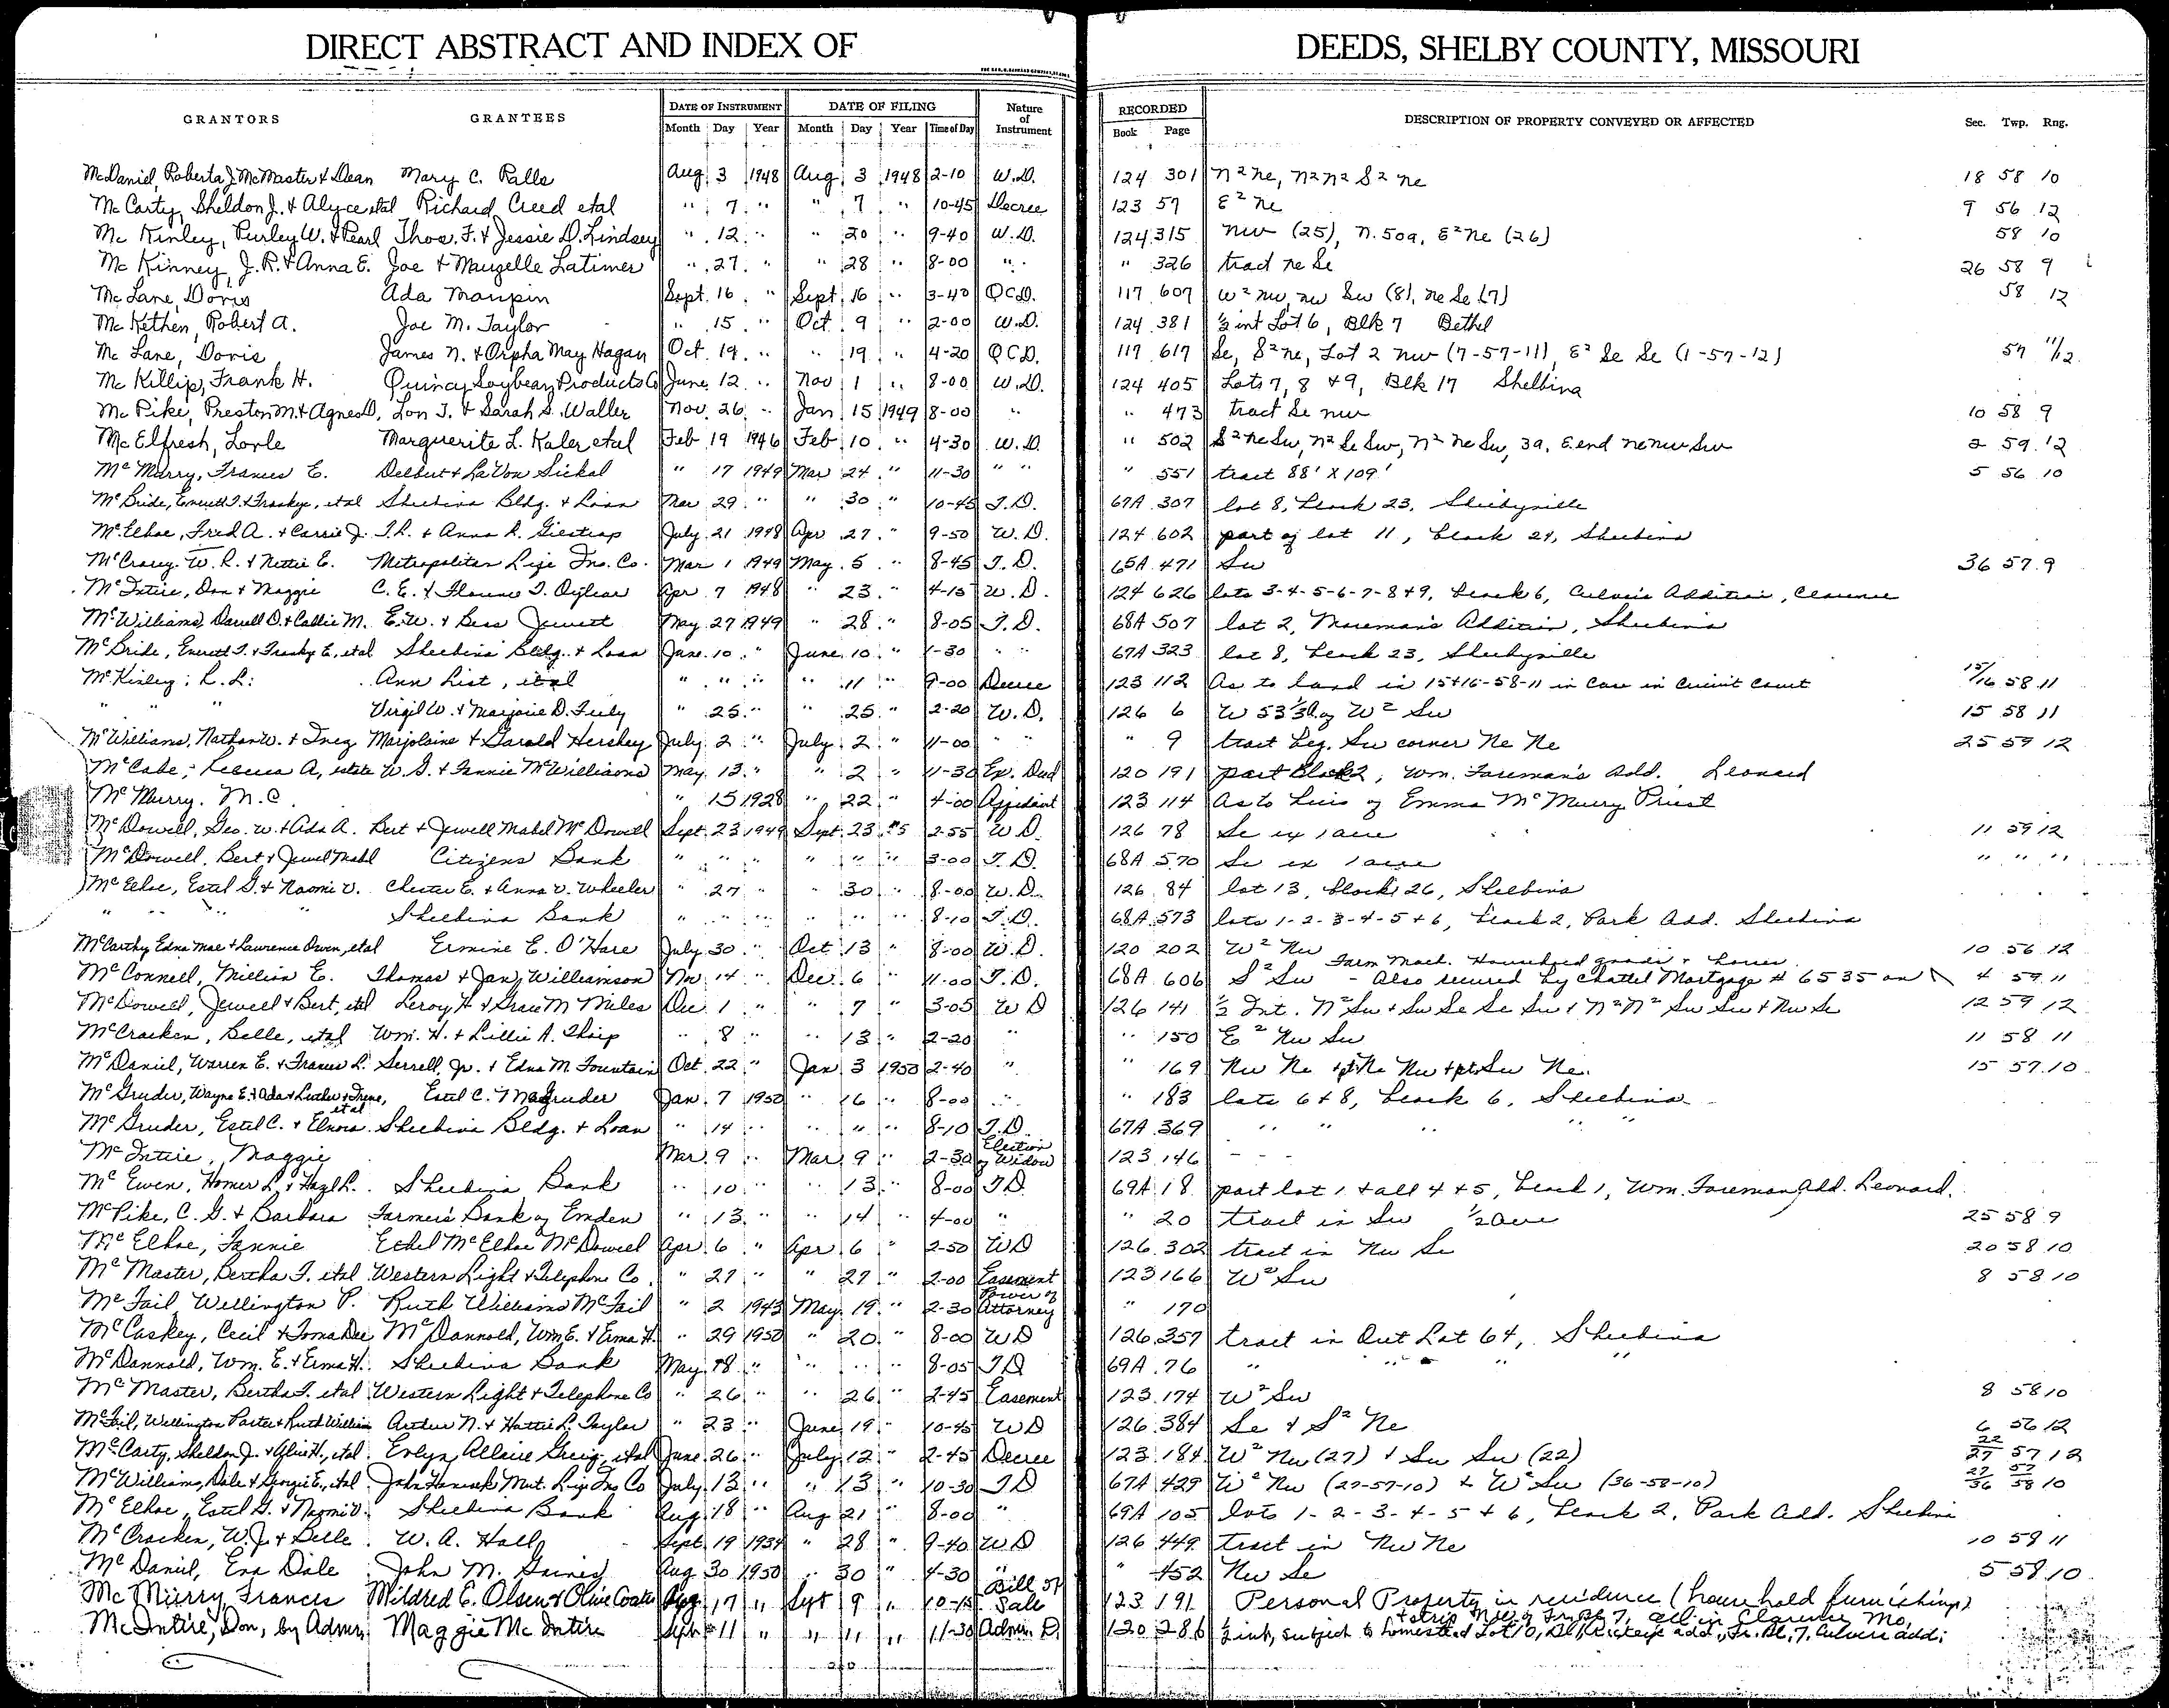 DIRECT ABSTRACT AND INDEX OF DEEDS, SHELBY COUNTY, MISSOURI
GRANTORS GRANTEES DATE OF INSTRUMENT DATE OF FILING Nature of Instrument RECORDED DESCRIPTION OF PROPERTY CONVEYED OR AFFECTED Sec. Twp. Rng.
Month Day Year Month Day Year Time of Day Book Page
McDaniel, Roberta J. McMaster & Dean Mary C. Ralls Aug 3 1948 Aug 3 1948 2-10 W.D. 124 301 N² Ne, N² N² S² Ne 18 58 10
McCarty, Sheldon J. & Alyce etal Richard Creed etal " 7 " " 7 " 10-45 Decree 123 57 E² Ne 9 56 12
McKinley, Purley W. & Pearl Thos. F. & Jessie D. Lindsey " 12 " " 20 " 9-40 W.D. 124 315 NW (25), N. 50a, E² Ne (26) 58 10
McKinney, J.R. & Anna E. Joe & Mauzelle Latimer " 27 " " 28 " 8-00 " " 326 tract Ne Se 26 58 9
McLane, Doris Ada Maupin Sept. 16 " Sept 16 " 3-40 QCD. 117 607 W² NW, NW SW (8), Ne Se (7) 58 12
McKethen, Robert A. Joe M. Taylor " 15 " Oct 9 " 2-00 W.D. 124 381 ½ int Lot 6, Blk 7 Bethel
McLane, Doris James N. & Orpha May Hagan Oct. 19 " " 19 " 4-20 QCD. 117 617 Se, S² Ne, Lot 2 NW (7-57-11), E² Se Se (1-57-12) 57 11/12
McKillip, Frank H. Quincy Soybean Products Co June 12 " Nov 1 " 8-00 W.D. 124 405 Lots 7, 8 & 9, Blk 17 Shelbina
McPike, Preston M. & Agnes D. Lon T. & Sarah S. Waller Nov. 26 " Jan 15 1949 8-00 " " 473 tract Se NW 10 58 9
McElfresh, Lorle Marguerite L. Kaler etal Feb 19 1946 Feb 10 " 4-30 W.D. " 502 S² Ne SW, N² Se SW, N² Ne SW, 3a. E. end Ne NW SW 2 59 12
McMurry, Frances E. Delbert & LaVon Sickal " 17 1949 Mar 24 " 11-30 " " " 551 tract 88' X 109' 5 56 10
McBride, Everett T. & Frankye, etal Shelbina Bldg. & Loan Mar 29 " " 30 " 10-45 T.D. 67A 307 lot 8, block 23, Shelbyville
McElhoe, Fred A. & Carrie J. T.R. & Anna R. July 21 1948 Apr 27 " 9-50 W.D. 124 602 part of lot 11, block 24, Shelbina
McCrary, W. R. & Nettie E. Metropolitan Life Ins. Co. Mar 1 1949 May 5 " 8-45 T.D. 65A 471 SW 36 57 9
McIntire, Don & Maggie C. E. & Florence T. Apr 7 1948 " 23 " 4-15 W.D. 124 626 lots 3-4-5-6-7-8 & 9, block 6, Culver's Addition, Clarence
McWilliams, Darrell D. & Callie M. E.W. & Bess Jewett May 27 1949 " 28 " 8-05 T.D. 68A 507 lot 2, Addition, Shelbina
McBride, Everett T. & Franky E, etal Shelbina Bldg. & Loan June 10 " June 10 " 1-30 " " 67A 323 lot 8, block 23, Shelbyville
McKinley, L. L. Ann List, etal " " " " 11 " 9-00 Decree 123 112 As to land in 15+16-58-11 in case in Circuit Court 15/16 58 11
" " " Virgil W. & Marjorie D. Feely " 25 " " 25 " 2-20 W.D. 126 6 W 53⅓ a of W² SW 15 58 11
McWilliams, Nathan W. & Inez Marjolaine & Garold Hershey July 2 " July 2 " 11-00 " " " 9 tract beg. SW corner Ne Ne 25 59 12
McCabe, Rebecca A, estate W. S. & Fannie McWilliams May 13 " " 2 " 11-30 Ex. Deed 120 191 part Block 2, Wm. Foreman's Add. Leonard
McMurry, M.C. " 15 1928 " 22 " 4-00 Affidavit 123 114 As to heirs of Emma McMurry Priest
McDowell, Geo. W. & Ada A. Bert & Jewell Mabel McDowell Sept. 23 1949 Sept. 23 " 2-55 W.D. 126 78 Se ex 1 acre 11 59 12
McDowell, Bert & Jewel Mabel Citizens Bank " " " " " " 3-00 T.D. 68A 570 Se ex 1 acre " " "
McElhoe, Estel G. & Naomi V. Chester E. & Anna V. Wheeler " 27 " " 30 " 8-00 W.D. 126 84 lot 13, block 26, Shelbina
" " " " Shelbina Bank " " " " " " 8-10 T.D. 68A 573 lots 1-2-3-4-5 & 6, block 2, Park Add. Shelbina
McCarthy, Edna Mae & Lawrence Owen, etal Ermine E. O'Hare July 30 " Oct 13 " 8-00 W.D. 120 202 W² NW 10 56 12
Farm Mach. Household goods & horses
McConnell, Million E. Thomas & Jany Williamson Nov. 14 " Dec. 6 " 11-00 T.D. 68A 606 S² SW - Also secured by Chattel Mortgage # 6535 on 4 59 11
McDowell, Jewell & Bert, etal Leroy H. & Grace M Miles Dec 1 " " 7 " 3-05 WD 126 141 ½ Int. N² SW & SW Se Se SW & N² N² SW SW & NW Se 12 59 12
McCracken, Belle, etal Wm. H. & Lillie A. Tharp " 8 " " 13 " 2-20 " " 150 E² NW SW 11 58 11
McDaniel, Warren E. & Frances L. Serrell, Jr. & Edna M. Fountain Oct. 22 " Jan 3 1950 2-40 " " 169 NW Ne & pt Ne NW & pt SW Ne. 15 57 10
McGruder, Wayne E. & Ada & Luther & Irene, etal Estel C. Magruder Jan. 7 1950 " 16 " 8-00 " " 183 lots 6 & 8, block 6, Shelbina
McGruder, Estel C. & Elnora Shelbina Bldg. & Loan " 14 " " " " 8-10 T.D. 67A 369 " " " " "
McIntire, Maggie Mar. 9 " Mar 9 " 2-30 Election of Widow 123 146 - - -
McEwen, Homer L. & Hazel L. Shelbina Bank " 10 " " 13 " 8-00 T.D. 69A 18 part lot 1 & all 4 & 5, block 1, Wm. Foreman Add. Leonard.
McPike, C. G. & Barbara Farmers Bank of Emden " 13 " " 14 " 4-00 " " 20 tract in SW ½ acre 25 58 9
McElhoe, Fannie Ethel McElhoe McDowell Apr. 6 " Apr 6 " 2-50 WD 126 302 tract in NW Se 20 58 10
McMaster, Bertha F. etal Western Light & Telephone Co. " 27 " " 27 " 2-00 Easement 123 166 W² SW 8 58 10
McFail, Wellington P. Ruth Williams McFail " 2 1943 May 19 " 2-30 Power of Attorney " 170
McCaskey, Cecil & Toma Dee McDannold, Wm. E. & Erma H. " 29 1950 " 20 " 8-00 WD 126 357 tract in Out Lot 64, Shelbina
McDannold, Wm. E. & Erma H. Shelbina Bank May 18 " " " " 8-05 TD 69A 76 " " " "
McMaster, Bertha F. etal Western Light & Telephone Co " 26 " " 26 " 2-45 Easement 123 174 W² SW 8 58 10
McFail, Wellington Porter & Ruth William Arthur N. & Hattie L. Taylor " 23 " June 19 " 10-45 WD 126 384 Se & S² Ne 6 56 12
McCarty, Sheldon J. & Alice H., etal Evlyn Allaire Greig, etal June 26 " July 12 " 2-45 Decree 123 184 W² NW (27) & SW SW (22) 22/27 57 12
McWilliams, Dale & Georgie E., etal John Hancock Mut. Life Ins Co July 13 " " 13 " 10-30 TD 67A 429 W² NW (27-57-10) & W² SW (36-58-10) 27/36 57/58 10
McElhoe, Estel G. & Naomi V. Shelbina Bank Aug. 18 " Aug 21 " 8-00 " 69A 105 lots 1-2-3-4-5 & 6, block 2, Park Add. Shelbina
McCracken, W. J. & Belle W. A. Hall Sept. 19 1934 " 28 " 9-40 WD 126 449 tract in NW Ne 10 59 11
McDaniel, Eva Dale John M. Gaines Aug 30 1950 " 30 " 4-30 " " 452 NW Se 5 58 10
McMurry Frances Mildred E. Olsen & Olive Coate Aug. 17 " Sept 9 " 10-15 Bill of Sale 123 191 Personal Property in residence (household furnishings)
& strip N. side of Fr. Bl. 7, all in Clarence, Mo.
McIntire, Don, by Admr. Maggie McIntire Sept. 11 " " 11 " 11-30 Adm. D. 120 286 ½ int, subject to homestead Lot 10, Bl, add., Fr. Bl. 7, Culvers add;